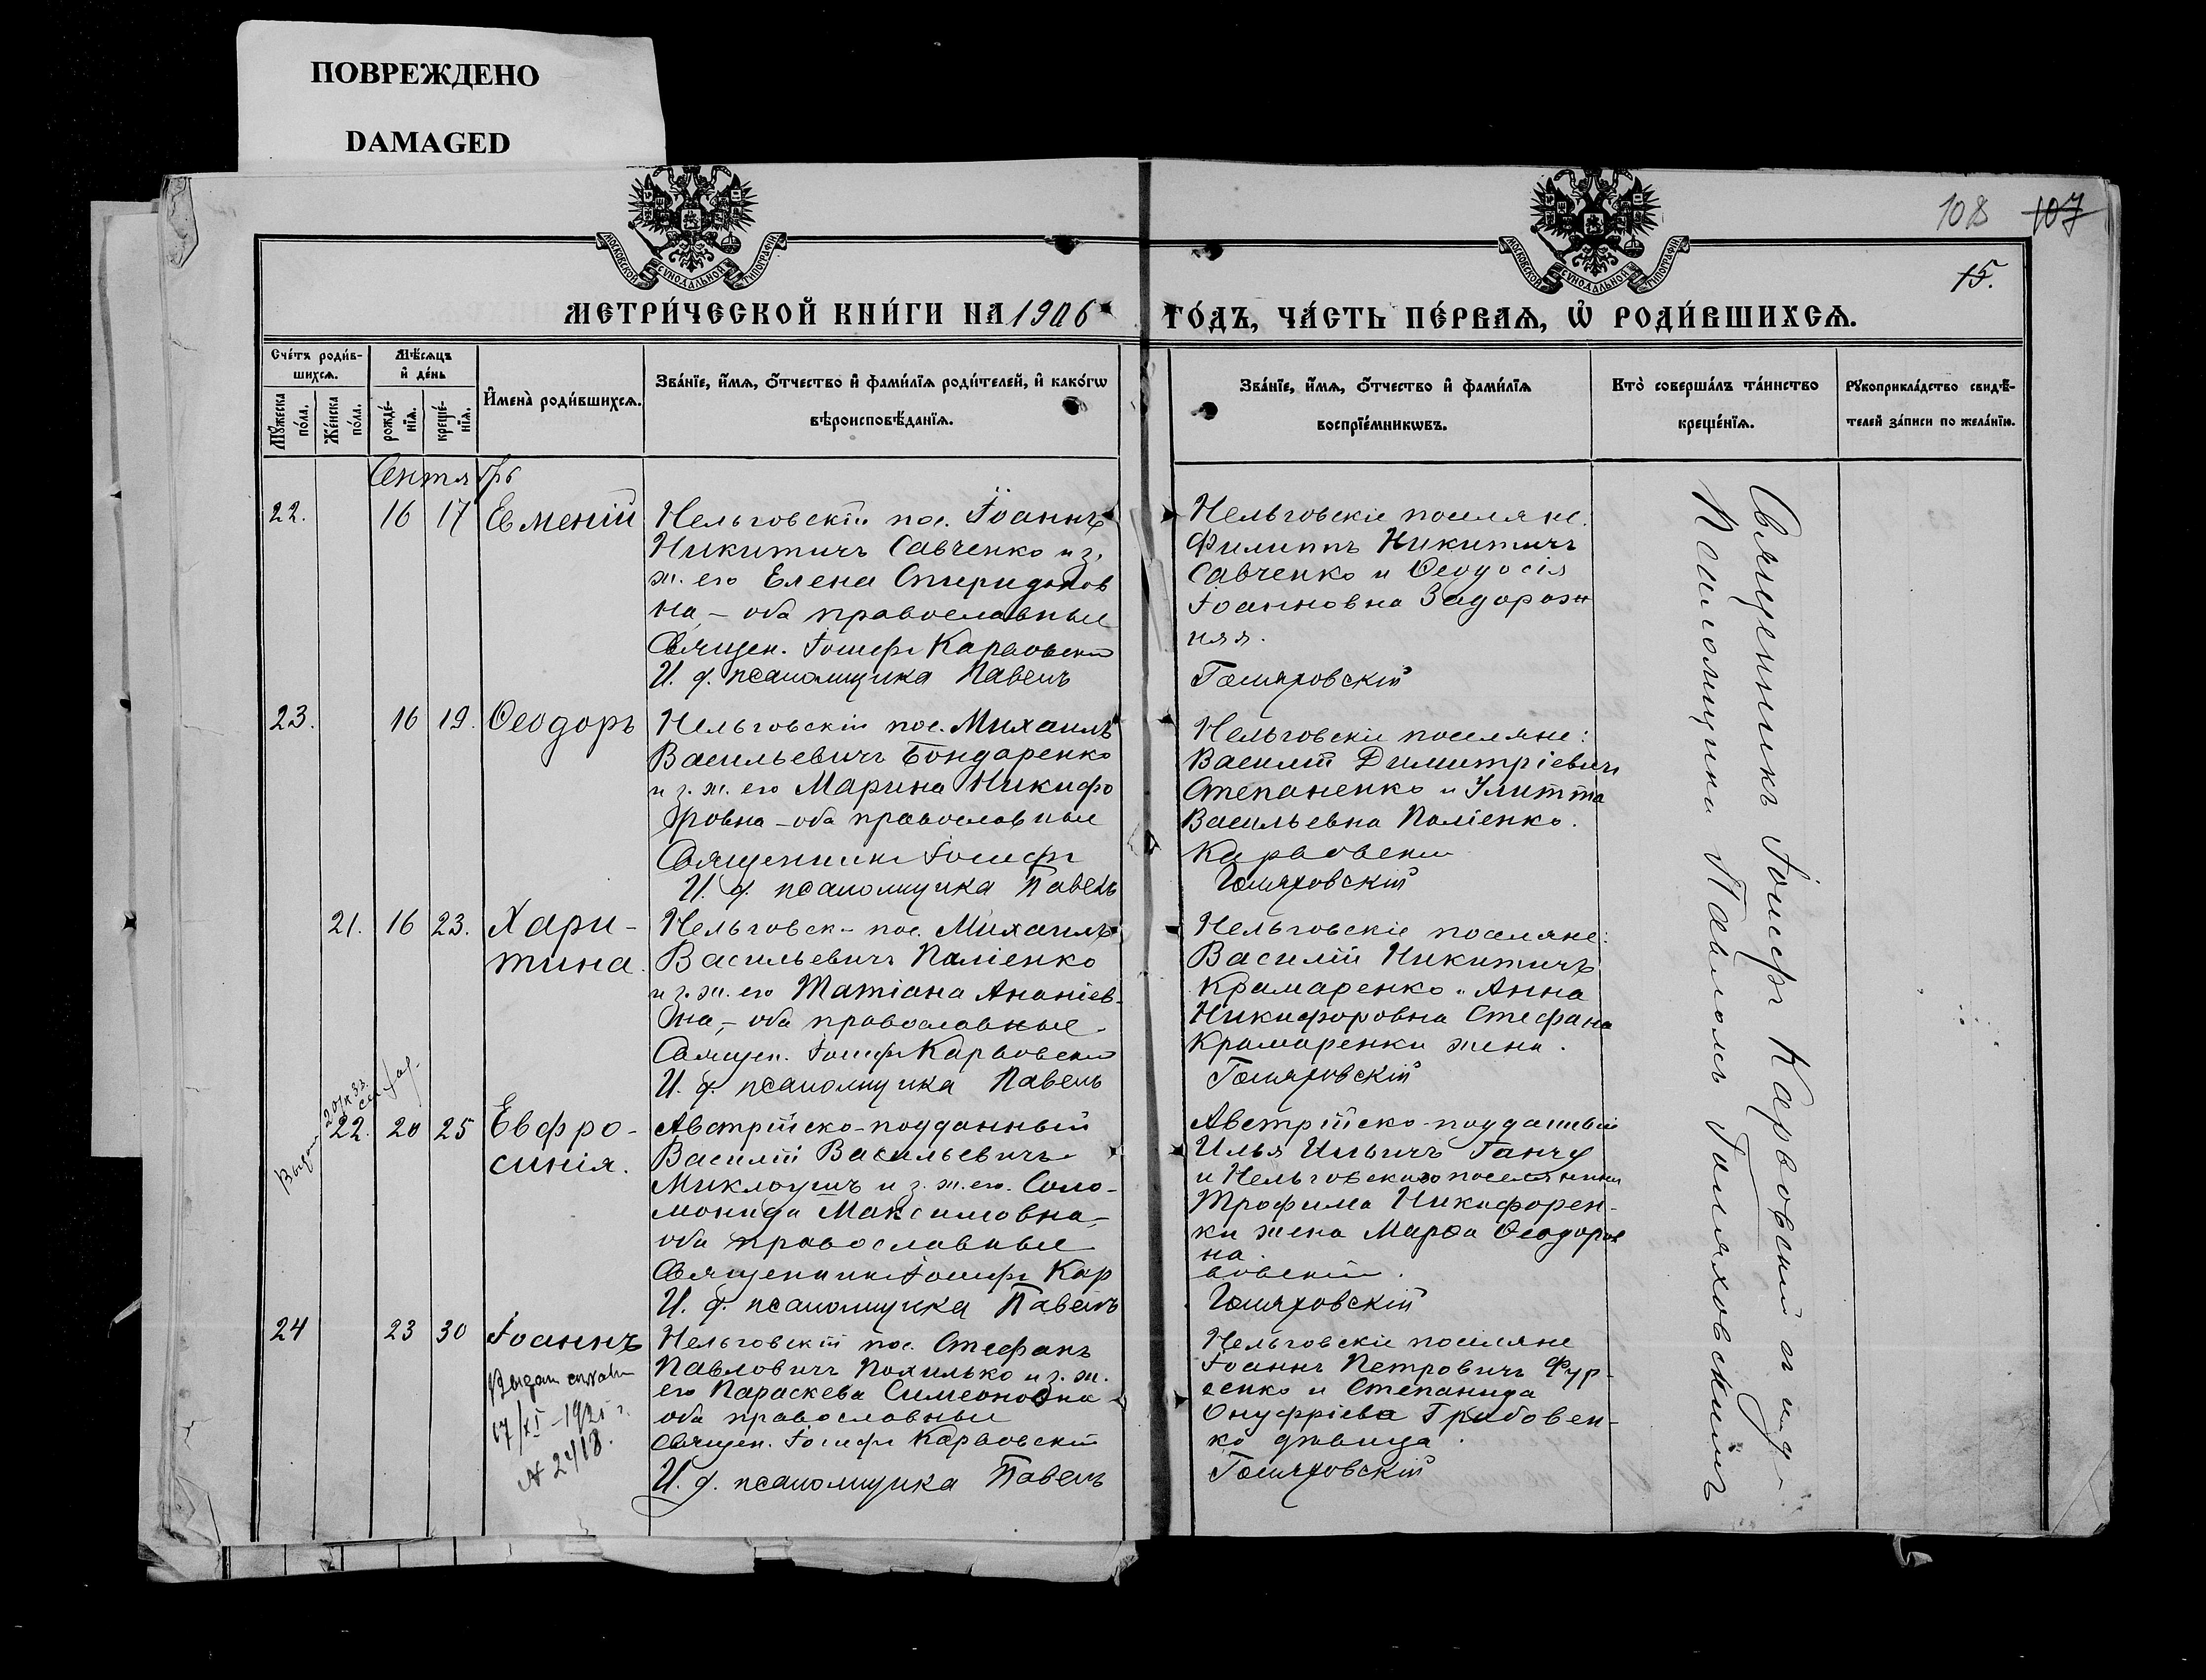 ПОВРЕЖДЕНО
DAMAGED
108 107
15.
МОСКОВСКОЙ СУНОДАЛЬНОЙ ТИПОГРАФІИ
МОСКОВСКОЙ СУНОДАЛЬНОЙ ТИПОГРАФІИ
МЕТРИ́ЧЕСКОЙ КНИ́ГИ НА 1906
ГО́ДЪ, ЧА́СТЬ ПЕ́РВАѦ, Ѽ РОДИ́ВШИХСѦ.
Сче́тъ роди́в-
шихсѧ.
Мꙋ́жеска по́ла.
Же́нска по́ла.
Мѣ́сѧцъ
и҆ де́нь
рожде́-
нїѧ.
креще́-
нїѧ.
И҆мена̀ роди́вшихсѧ.
Зва́нїе, и҆́мѧ, ѻ҆́тчество и҆ фами́лїѧ роди́телей, и҆ како́гѡ
вѣроисповѣ́данїѧ.
Зва́нїе, и҆́мѧ, ѻ҆́тчество и҆ фами́лїѧ
воспрїе́мникѡвъ.
Кто̀ соверша́лъ та́инство
креще́нїѧ.
Рꙋкоприкла́дство свидѣ́-
телей за́писи по жела́нїю.
Сентябрь
22. 16 17 Евменій
Нельговскій пос. Іоаннъ
Никитичъ Савченко и з.
ж. его Елена Спиридонов
на, – оба православные
Священ. Іосифъ Карвовскій
И. д. псаломщика Павелъ
Нельговскіе поселяне.
Филиппъ Никитичъ
Савченко и Ѳеодосія
Іоанновна Задорож
няя.
Голяховскій
23. 16 19. Ѳеодоръ
Нельговскій пос. Михаилъ
Васильевичъ Бондаренко
и з. ж. его Марина Никифо
ровна – оба православные
Священникъ Іосифъ
И. д. псаломщика Павелъ
Нельговскіе поселяне:
Василій Димитріевичъ
Степаненко и Улитта
Васильевна Паліенко.
Карвовскій
Голяховскій
21. 16 23. Хари-
тина.
Нельговск- пос. Михаилъ
Васильевичъ Паліенко
и з. ж. его Татіана Ананіев-
на, – оба православные.
Священ. Іосифъ Карвовскій
И. д. псаломщика Павелъ
Нельговскіе поселяне:
Василій Никитичъ
Крамаренко и Анна
Никифоровна Стефана
Крамаренка жена.
Голяховскій
22. 20 25 Евфро-
синія.
Австрійско-подданный
Василій Васильевичъ
Миклоушъ и з. ж. его Соло-
монида Максимовна, –
оба православные
Священникъ Іосифъ Кар
И. д. псаломщика Павелъ
Австрійско-подданный
Илья Ильичъ Ганчу
и Нельговскаго поселянина
Трофима Никифорен-
ка жена Марѳа Ѳеодоров
на.
вовскій.
Голяховскій
24 23 30 Іоаннъ
17/XI – 1925 г.
№ 2418.
Нельговскій пос. Стефанъ
Павловичъ Похилько и з. ж.
его Параскева Симеоновна
оба православные
Священ. Іосифъ Карвовскій
И. д. псаломщика Павелъ
Нельговскіе поселяне
Іоаннъ Петровичъ Фур-
сенко и Степанида
Онуфріева Грибовен-
ко дѣвица.
Голяховскій
Священникъ Іосифъ Карвовскій съ и. д.
Псаломщика Павломъ Голяховскимъ